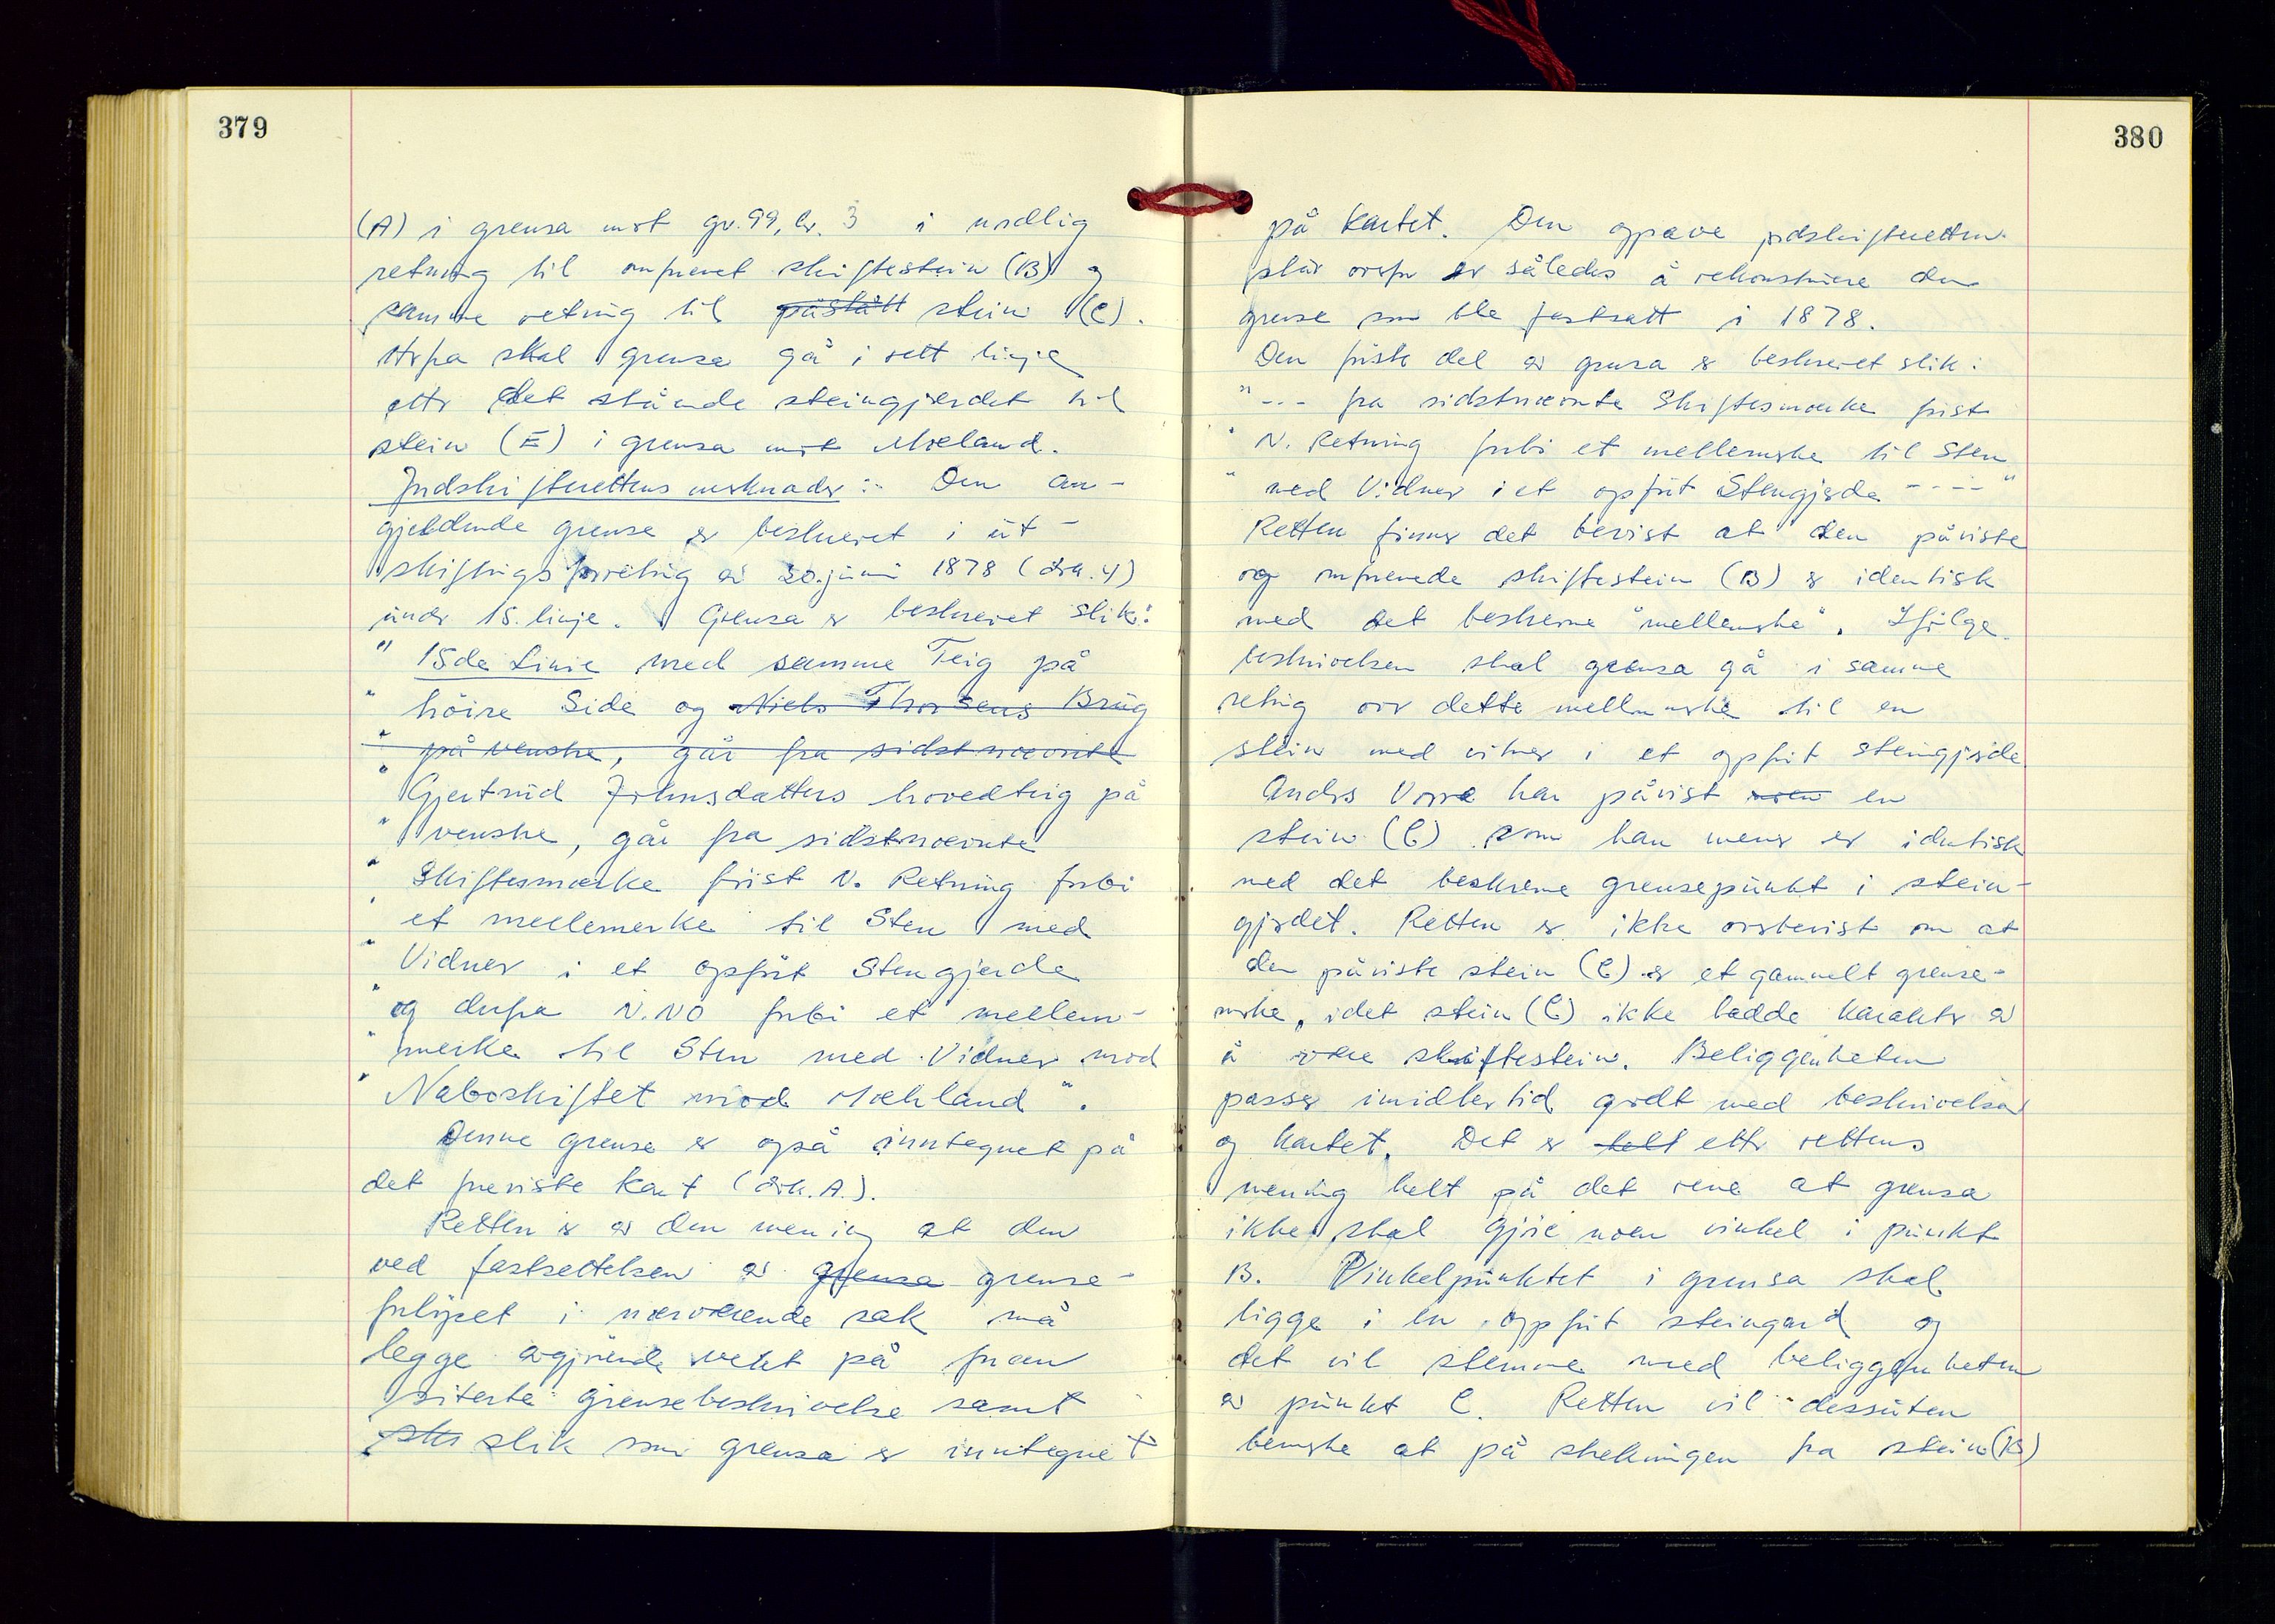 379
(A) i grensa mot gr. 99, br. 3 i nordlig
retning til omforenet skiftestein (B) og
samme retning til påstått stein (C).
Herfra skal grensa gå i rett linje
etter det stående steingjerdet til
stein (E) i grensa mot Mæland.
Jordskifterettens merknader: Den an-
gjeldende grense er beskrevet i ut-
skiftningsforretning av 20. juni 1878 (dok. 4)
under 15. linje. Grensa er beskrevet slik:
" 15de Linie med samme Teig på
" höire Side og Niels Thorsens Brug
" på venstre, går fra sidstnævnte
" Gjertrud Johnsdatters hovedteig på
" venstre, går fra sidstnævnte
" Skiftesmærke först N. Retning forbi
" et mellemerke til Sten med
" Vidner i et opfört Stengjerde
" og derfra N.NO forbi et mellem-
" merke til Sten med Vidner mod
" Naboskiftet mod Mæhland".
Denne grense er også inntegnet på
det foreviste kart (dok. A.).
Retten er av den mening at den
ved fastsettelsen av grensa grense-
forløpet i nærværende sak må
legge avgjørende vekt på foran
siterte grensebeskrivelse samt
etter slik som grensa er inntegnet
380
på kartet. Den oppgave jordskifteretten
står overfor er således å rekonstruere den
grense som ble fastsatt i 1878.
Den første del av grensa er beskrevet slik:
"--- fra sidstnævnte Skiftesmærke först
" N. Retning forbi et mellemerke til Sten
" med Vidner i et opfört Stengjerde ----"
Retten finner det bevist at den påviste
og omforenede skiftestein (B) er identisk
med det beskrevne "mellemerke". Ifølge
beskrivelsen skal grensa gå i samme
retning over dette mellemerke til en
stein med vitner i et oppført steingjerde
Anders Vorre har påvist noen en
stein (C) som han mener er identisk
med det beskrevne grensepunkt i stein-
gjerdet. Retten er ikke overbevist om at
den påviste stein (C) er et gammelt grense-
merke, idet stein (C) ikke hadde karakter av
å være skiftestein. Beliggenheten
passer imidlertid godt med beskrivelsen
og kartet. Det er helt etter rettens
mening helt på det rene at grensa
ikke skal gjøre noen vinkel i punkt
B. Vinkelpunktet i grensa skal
ligge i en oppført steingard og
det vil stemme med beliggenheten
av punkt C. Retten vil dessuten
bemerke at på strekningen fra stein (B)